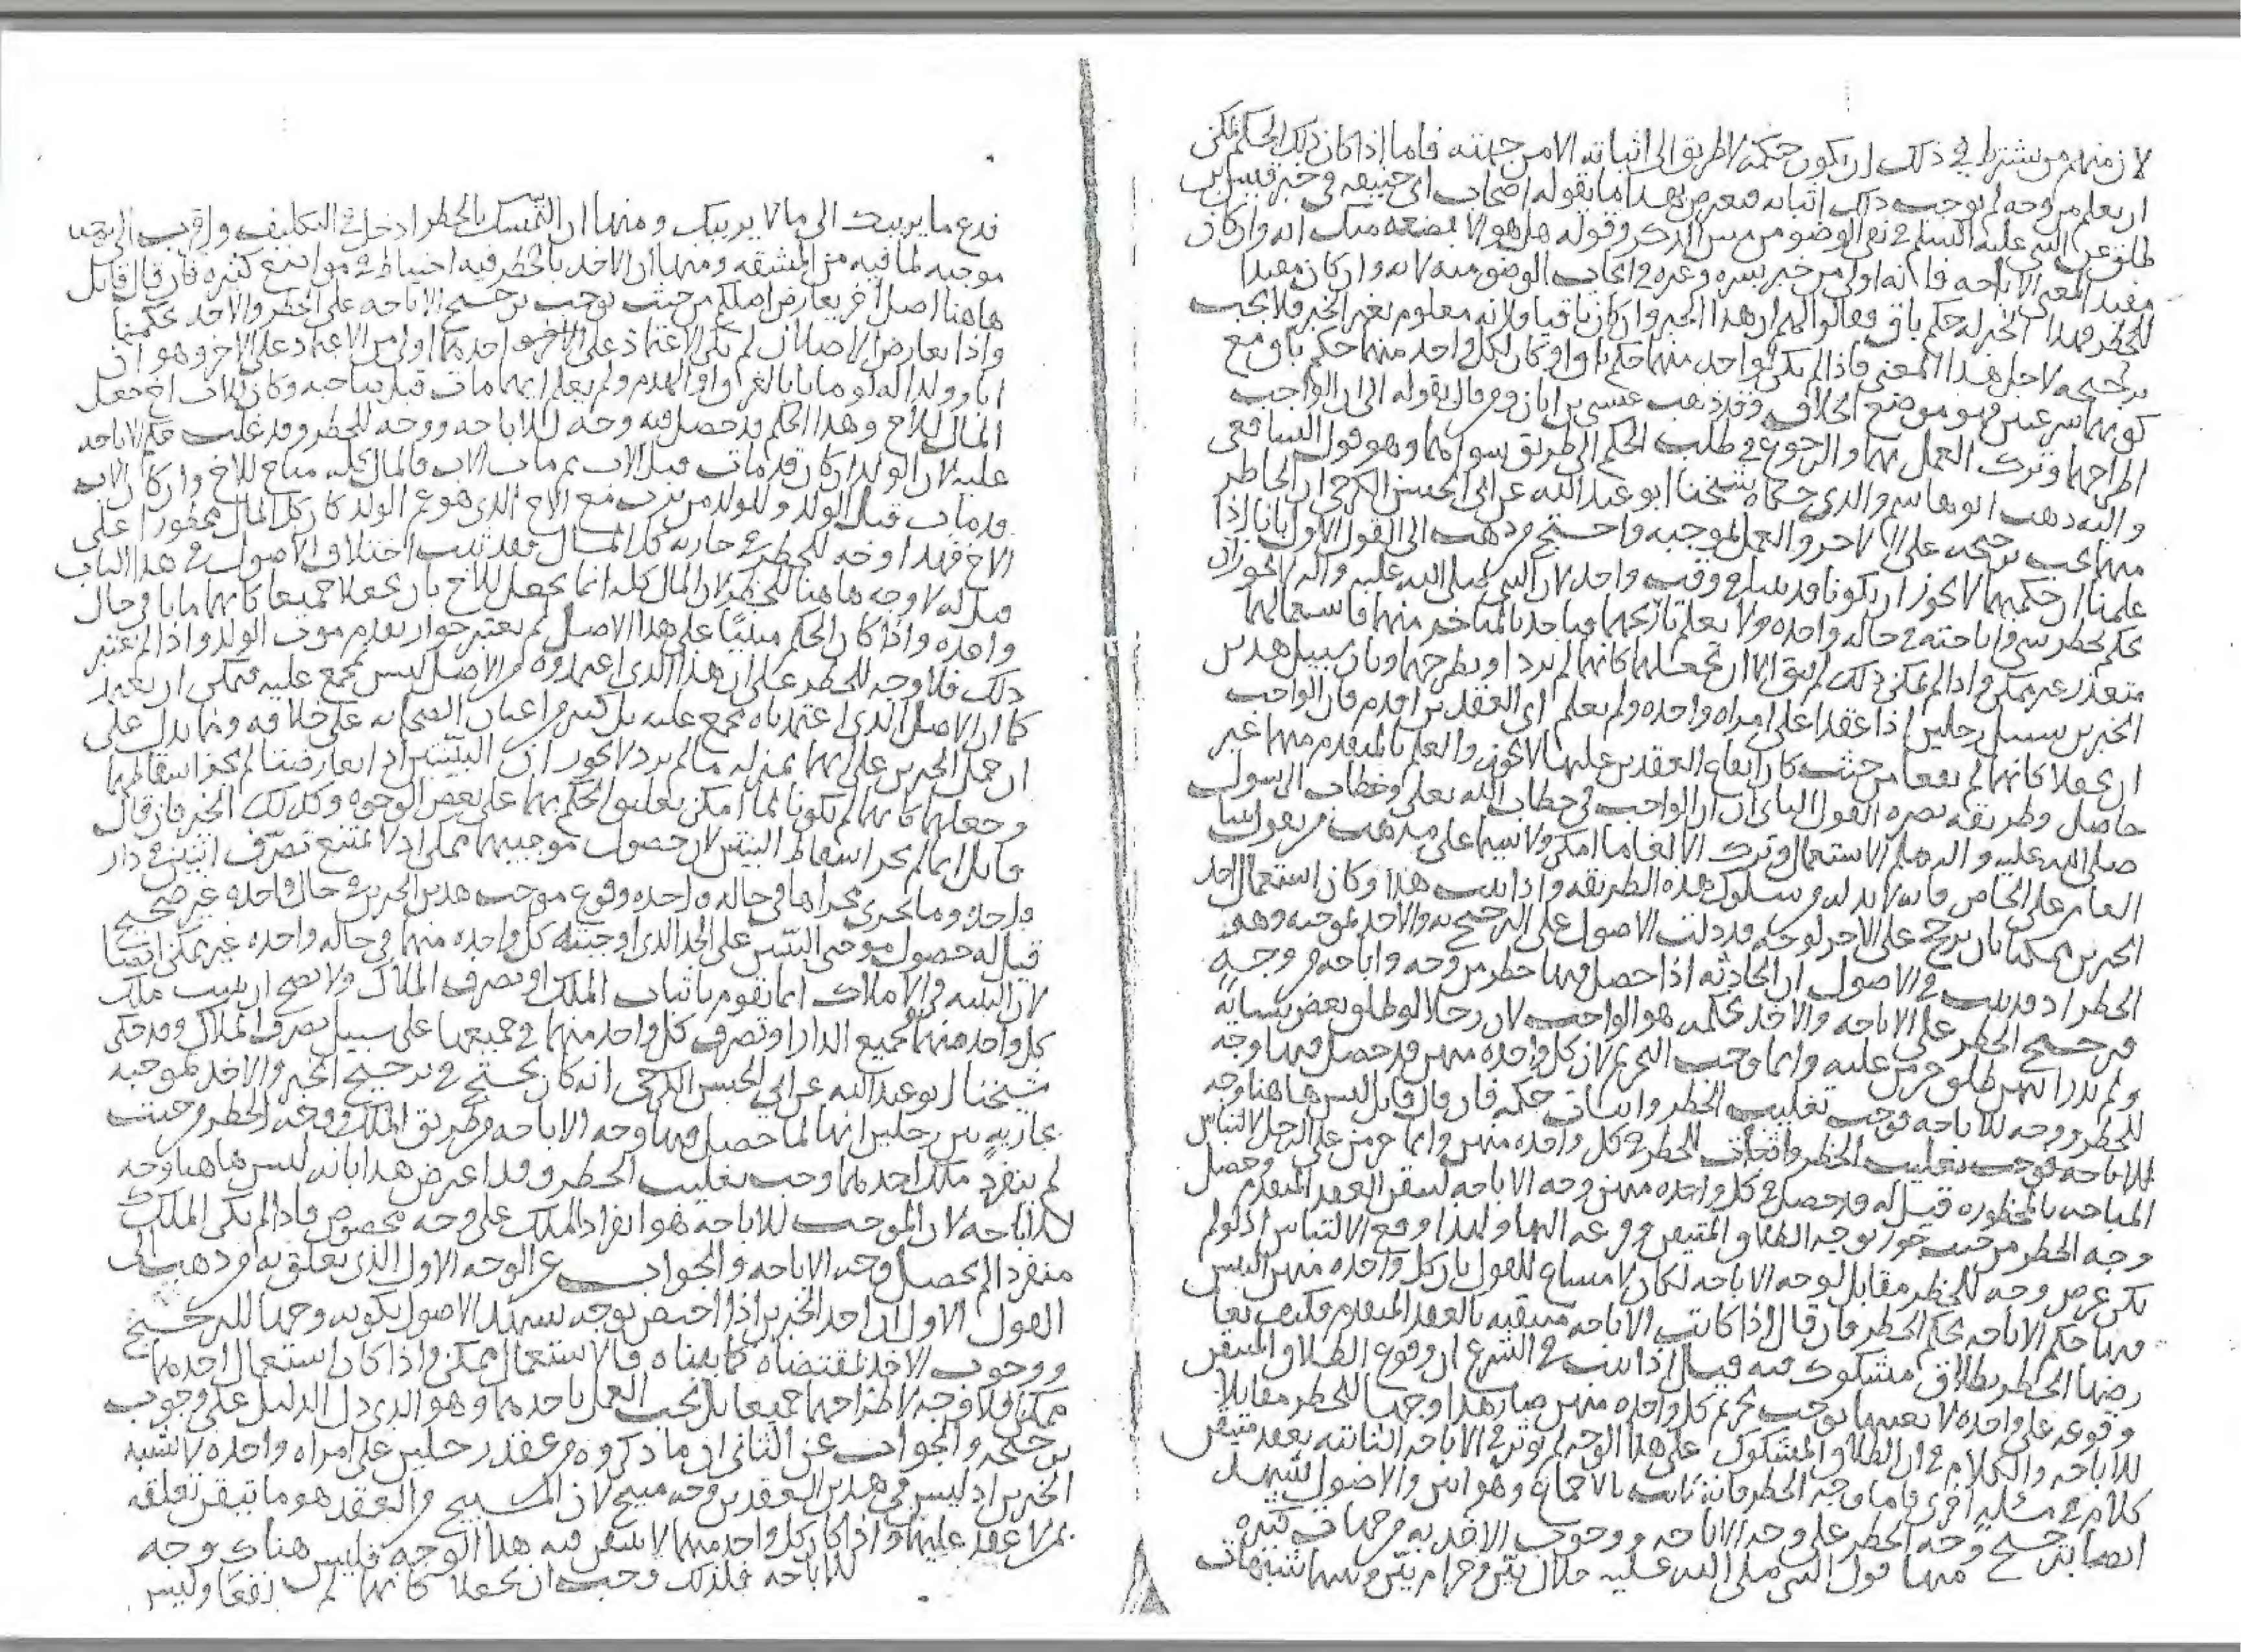 لان منهم من يشترط في ذلك ان يكون حكمه لا طريق الى اثباته الا من جهته فاما اذا كان ذلك الحكم يمكن
ان يعلم من وجه لم يوجب ذلك اثباته بهذا ما يقوله اصحاب ابي حنيفه في خبر قيس بن
طلق عن النبي عليه السلم في نفي الوضو من مس الذكر وقوله هل هو الا بضعه منك انه وان كان
مفيدا لمعنى الاباحه فانه اولى من خبر بسره وغيره في ايجاب الوضو منه لانه وان كان مفيدا
للحظر فهذا الخبر له حكم باق فقالوا لهم ان هذا الخبر وان كان باقيا فلانه معلوم بغير الخبر فلا يجب
ترجيحه لاجل هذا المعنى فاذا لم يكن لواحد منهما حكم باق او كان لكل واحد منهما حكم باق مع
كونهما شرعيين فهو موضع الخلاف فقد ذهب عيسى بن ابان ومن قال بقوله الى ان الواجب
اطراحهما وترك العمل بهما والرجوع في طلب الحكم الى طريق سواهما وهو قول الشافعي
واليه ذهب ابو هاشم والذي حكاه شيخنا ابو عبد الله عن ابي الحسن الكرخي ان الحاظر
منهما يجب ترجيحه على الاخر والعمل بموجبه واحتج من ذهب الى القول الاول بانا اذا
علمنا ان حكميهما لا يجوز ان يكونا قد شرعا في وقت واحد لان النبي صلى الله عليه واله لا يجوز ان
يحكم بحظر شي واباحته في حاله واحده ولا يعلم تاريخهما فياخذ بالمتاخر منهما فاستعمالهما
متعذر غير ممكن واذا لم يمكن ذلك لم يبق الا ان نجعلهما كانهما لم يردا ونطرحهما وبان سبيل هذين
الخبرين سبيل رجلين اذا عقدا على امراه واحده ولم يعلم اي العقدين اقدم فان الواجب
ان يجعلا كانهما لم يقعا من حيث كان ايقاع العقدين عليها لا يجوز والعلم بالمتقدم منهما غير
حاصل وطريقه نصره القول الثاني ان الواجب في خطاب الله تعالى وخطاب الرسول
صلى الله عليه واله هو الاستعمال وترك الالغا ما امكن ولا سيما على مذهب من يقول ببنا
العام على الخاص فانه لا بد له من سلوك هذه الطريقه واذا ثبت هذا وكان استعمال احد
الخبرين ممكنا بان يرجح على الاخر لوجه قد دلت الاصول على الترجيح به والاخذ بموجبه وهو
الحظر اذ قد ثبت في الاصول ان الحادثه اذا حصل فيها حظر من وجه واباحه من وجه
فترجيح الحظر على الاباحه والاخذ بحكمه هو الواجب لان رجلا لو طلق بعض نسائه
ولم يدر ايتهن طلق حرمن عليه وانما وجب التحريم لان كل واحده منهن قد حصل فيها وجه
للحظر ووجه للاباحه فوجب تغليب الحظر واثبات حكمه فان قال قائل ليس هاهنا وجه
للاباحه فوجب تغليب الحظر واثبات الحظر في كل واحده منهن وانما حرمن على الرجل لالتباس
المباحه بالمحظوره قيل له قد حصل في كل واحده منهن وجه الاباحه لتيقن العقد المتقدم وحصل
وجه الحظر من حيث جوز توجه الطلاق المتيقن وقوعه اليها ولهذا وقع الالتباس اذ لو لم
يكن عرض وجه للحظر مقابل لوجه الاباحه لكان لا مساغ للقول بان كل واحده منهن التبس
فيها حكم الاباحه بحكم الحظر فان قال اذا كانت الاباحه متيقنه بالعقد المتقدم فكيف
رفعها الحظر بطلاق مشكوك فيه قيل اذا ثبت في الشرع ان وقوع الطلاق المتيقن
وقوعه على واحده لا بعينها يوجب تحريم كل واحده منهن صار هذا وجها للحظر مقابلا
للاباحه والكلام في ان الطلاق المشكوك على هذا الوجه لم يوثر في الاباحه الثابته بعقد متيقن
كلام في مسئله اخرى فاما وجه الحظر فانه ثابت بالاجماع والاصول تشهد
ايضا بترجيح وجه الحظر على وجه الاباحه ووجوب الاخذ به من جهات كثيره
منها قول النبي صلى الله عليه حلال بيّن وحرام بيّن وبينهما شبهات
فدع ما يريبك الى ما لا يريبك ومنها ان التمسك بالحظر ادخل في التكليف واقرب الى
موجبه لما فيه من المشقه ومنها ان الاخذ بالحظر فيه احتياط في مواضع كثيره فان قال قائل
هاهنا اصل اخر يعارض اصلكم من حيث يوجب ترجيح الاباحه على الحظر والاخذ بحكمها
واذا تعارض الاصلان لم يكن الاعتماد على احدهما اولى من الاعتماد على الاخر وهو ان
ابا وولدا له لو ماتا بالغرق او الهدم ولم يعلم ايهما مات قبل صاحبه وكان للاب اخ جعل
المال للاخ وهذا الحكم قد حصل فيه وجه للاباحه ووجه للحظر وقد غلبت حكم الاباحه
عليه لان الولد ان كان قد مات قبل الاب ثم مات الاب فالمال كله مباح للاخ وان كان الاب
قد مات قبل الولد وللولد من يرث مع الاخ الذي هو عم الولد كان كل المال محظورا على
الاخ فهذا وجه للحظر فقد ثبت اختلاف الاصول في هذا الباب
قيل له لا وجه هاهنا للحظر لان المال كله انما يجعل للاخ بان يجعلا جميعا كانهما ماتا في حال
واحده واذا كان الحكم مبنيّا على هذا الاصل لم يعتبر جواز تقدم موت الولد واذا لم يعتبر
ذلك فلا وجه للحظر على ان هذا الذي اعتمدوه من الاصل ليس بمجمع عليه فيمكن ان
كما ان الاصل الذي اعتمدناه مجمع عليه بل كثير من اعيان الصحابه على خلافه ومما يدل على
ان حمل الخبرين على انهما بمنزله ما لم يرد لا يجوز ان البيّنتين اذا تعارضتا لم يجز اسقاطهما
وجعلهما كانهما لم يكونا لما امكن تعليق الحكم بهما على بعض الوجوه وكذلك الخبر فان قال
قائل انما لم يجز اسقاط البينتين لان حصول موجبيهما ممكن اذ لا يمتنع تصرّف اثنين في دار
واحده وما يجري مجراها في حاله واحده ووقوع موجب هذين الخبرين في حال واحده غير صحيح
قيل له حصول موجبي البينتين على الحد الذي اوجبته كل واحده منهما في حاله واحده غير ممكن ايضا
لان البينه في الاملاك انما تقوم باثبات الملك او تصرف الملاك ولا يصح ان يثبت ملك
كل واحد منهما لجميع الدار او تصرف كل واحد منهما في جميعها على سبيل تصرف الملاك وقد حكى
شيخنا ابو عبد الله عن ابي الحسن الكرخي انه كان يحتج في ترجيح الخبر والاخذ بموجبه
بجاريه بين رجلين انها لما حصل فيها وجه الاباحه من طريق الملك ووجه الحظر من حيث
لم ينفرد ملك احدهما وجب تغليب الحظر وقد اعترض هذا بانه ليس هاهنا وجه
للاباحه لان الموجب للاباحه هو انفراد الملك على وجه مخصوص فاذا لم يكن الملك
منفردا لم يحصل وجه الاباحه والجواب عن الوجه الاول الذي تعلق به من ذهب الى
القول الاول ان احد الخبرين اذا اختص بوجه تشهد الاصول بكونه وجها للترجيح
ووجوب الاخذ بمقتضاه كما بيناه فالاستعمال ممكن واذا كان استعمال احدهما
ممكنا فلا وجه لاطراحهما جميعا بل يجب العمل باحدهما وهو الذي دل الدليل على وجوب
ترجيحه والجواب عن الثاني ان ما ذكروه من عقد رجلين على امراه واحده لا يشبه
الخبرين اذ ليس في هذين العقدين وجه مبيح لان المبيح والعقد هو ما تيقن تعلقه
بمن عقد عليها واذا كان كل واحد منهما لا يتيقن فيه هذا الوجه فليس هناك وجه
للاباحه فلذلك وجب ان يجعلا كانهما لم يقعا وليس